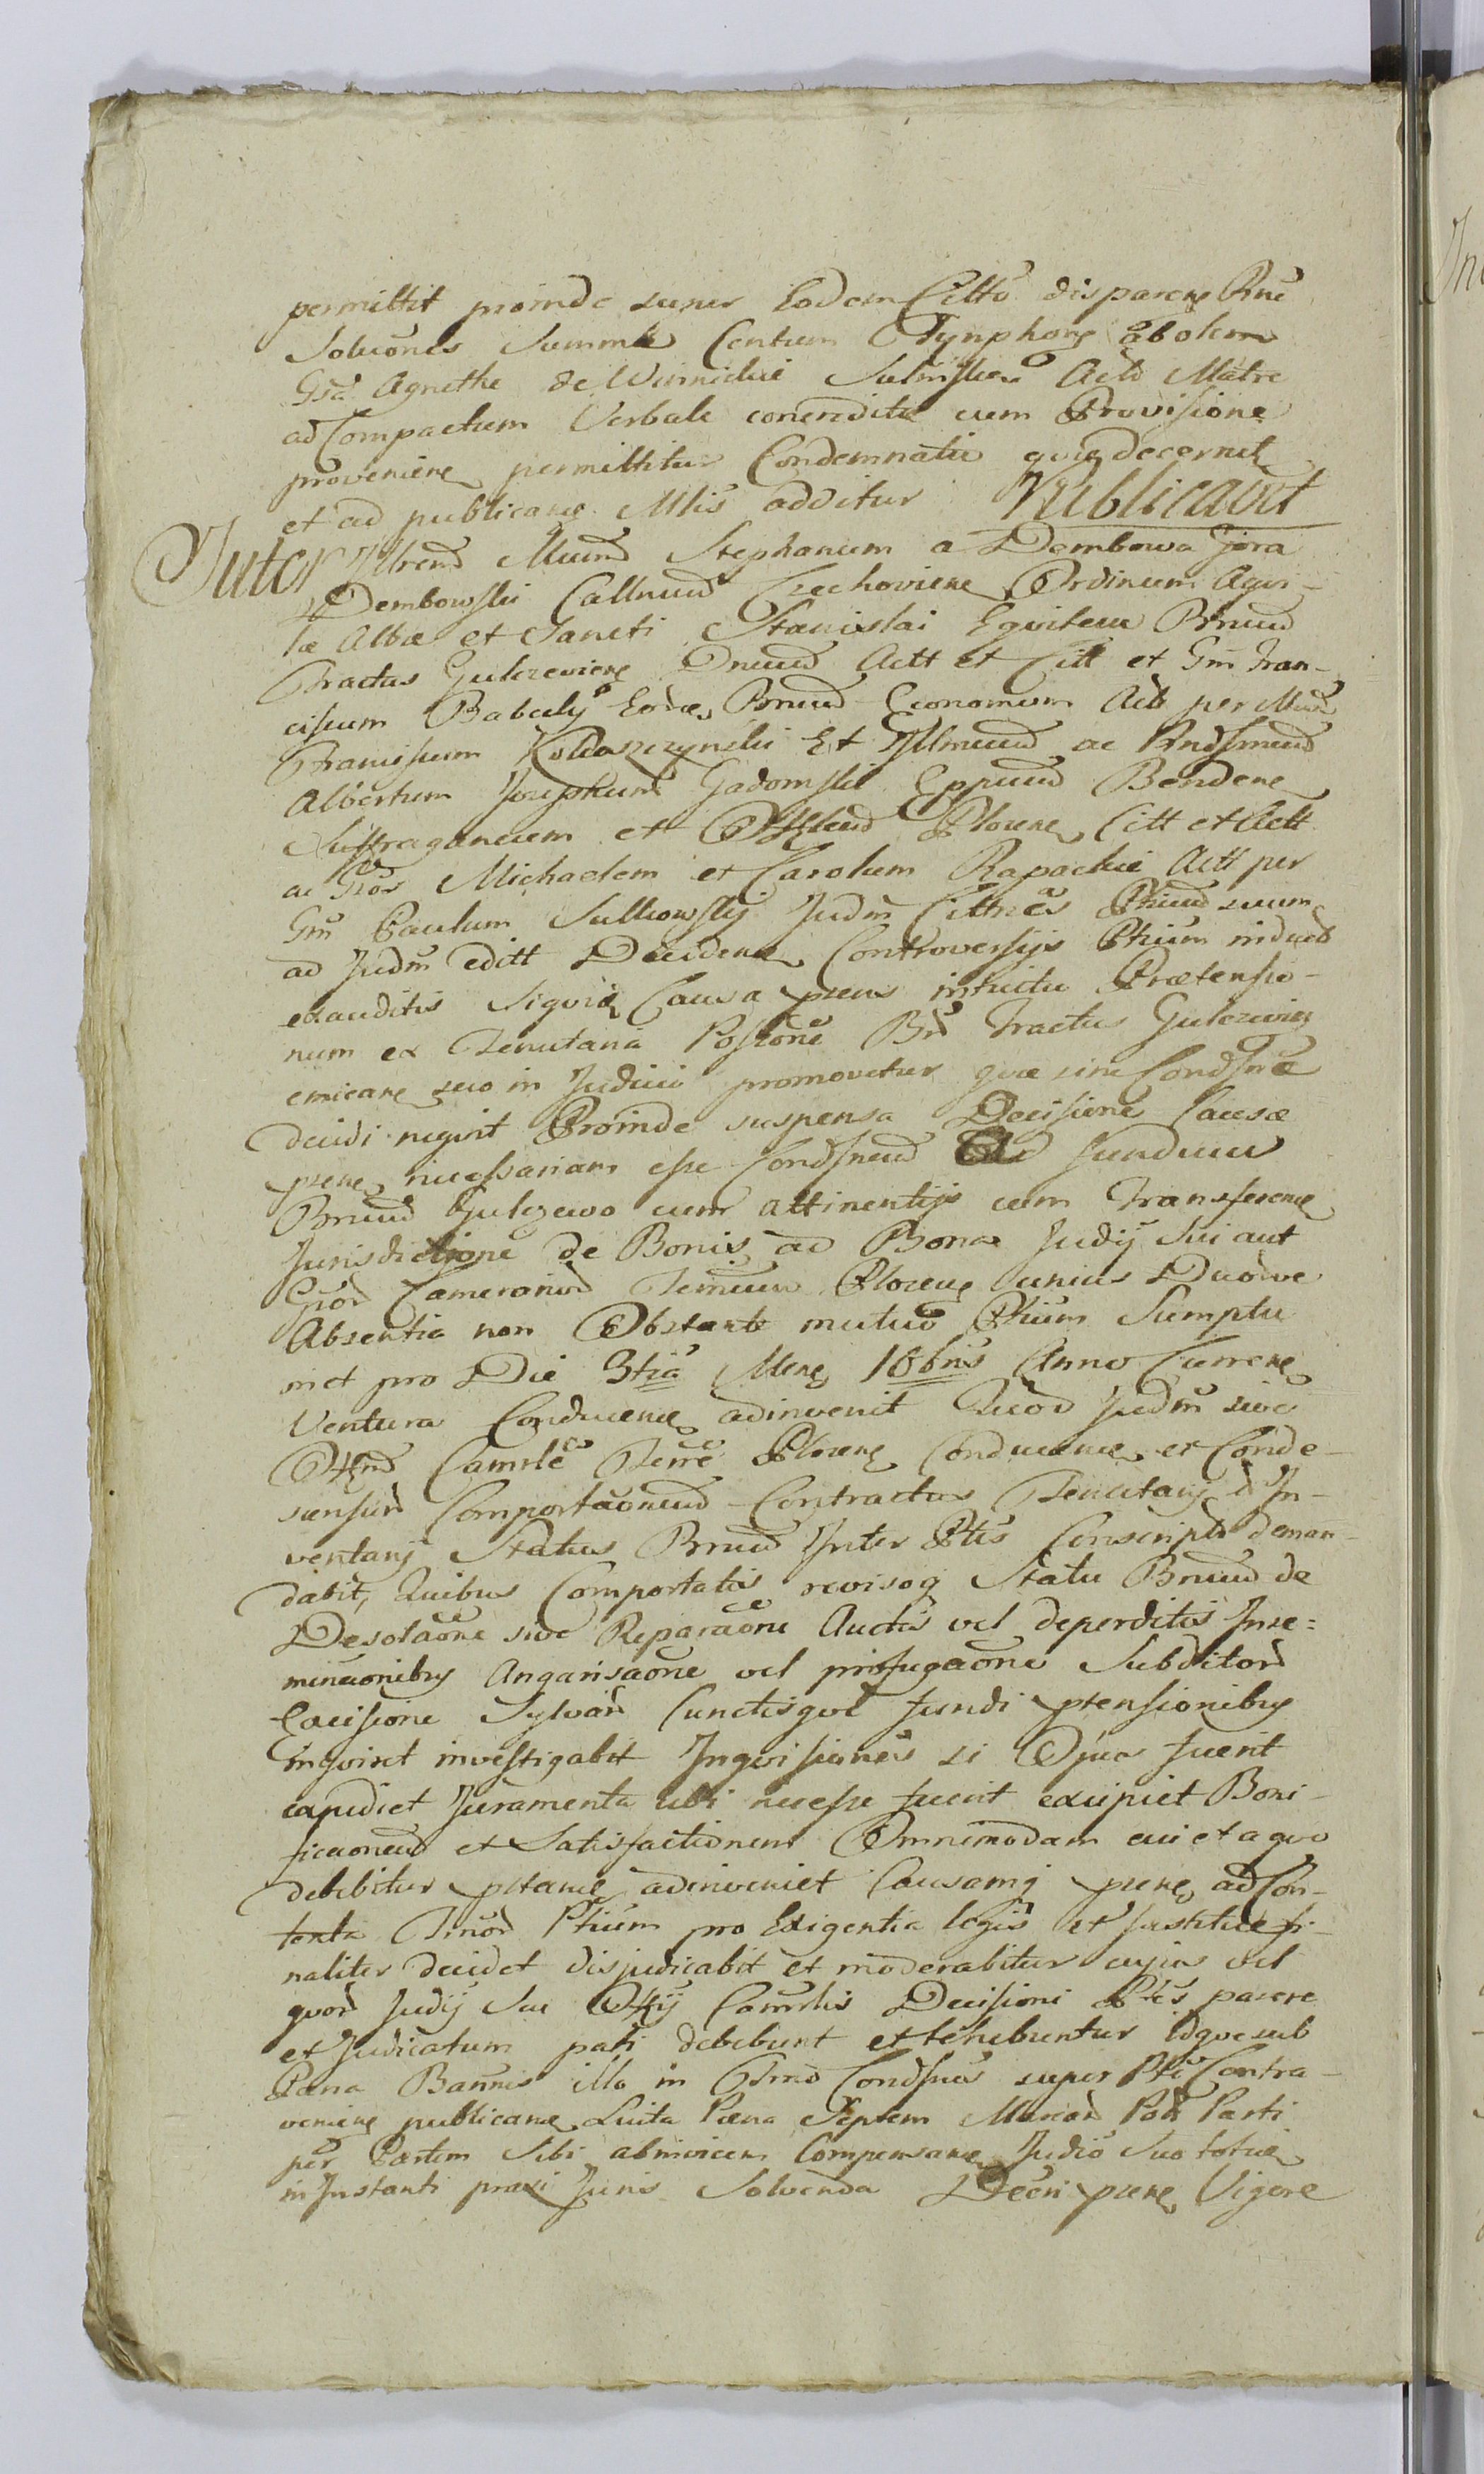 permittit proinde super Eodem Citto disparene Rne
Soluonis Summæ Centum Tynphone ab olem
Gsa Agnethe de Winnickie Sulinskien Acto Matre
ad Compactum Verbale concredite cum Provisione
proveniene permittitur Condemnatio quiq decernit
et ad publicane Mlis additur Publicavit
Inter Illrem Mund Stephanum a Dembowa Gora
Dembowski Callnum Czechoviene Ordinum Aqui-
læ Albæ et Sancti Stanislai Equitem Bnum
Tractus Gulczeviene Dnum Actt et Citt et Gm Fran-
ciscum Babecky Eordæ Bnum Economum Act per Mund
Franciscum Koldaszczynski Et Illmum ac Rndsmum
Albertum Josephum Gadomski Eppum Bendene
Suffraganeum et Offlem Plocene Citt et Actt
ac Gsos Michaelem et Carolum Rapackie Actt per
Gm Paulum Sulkowsky Judm Cittnes Ptium suum
ad Judm editt Decidene Controversijs Ptium induct
exauditis Siquid Causa prens intuitu Prætensio-
num ex Tenutaria Possone Br Tractus Gulczeviene
emicane suo in Judicio promovetur quæ sine Condsne
decidi nequit Proinde suspensa Decisione Causæ
prene necessariam esse Condsneus Ad fundum
Bnum Gulczewo cum attinentijs cum Transferene
Jurisdictione de Bonis ad Bona Judij Sui aut
Gror Camerariod Ternum Plocene unius Duorve
Absentia non Obstante mutuo Ptium Sumptu
met pro Die 3tia Mene 10bris Anno Currene
Ventura Conducene adinvenit Quod Judm sive
Offm Camrle Terre Plocene Conducene et Conde-
scensur Comportaoneus Contractus Tenutarij d In-
ventarij Status Bnum Inter Ptes Conscripto deman-
dabit, Quibus Comportatis revisoq Statu Bnum de
Desolaone sive Reparaone Auctis vel deperditis Inse=
minaonibus Angarisaone vel profugaone Subditor
Excisione Sylvar Cunctisqve fundi ptensionibus
inquiret investigabit Inquisiones si Opus fuerit
expediet Juramenta ubi necesse fuerit excipiet Boni-
ficaoneus et Satisfactionem Omnimodam cui et a quo
debebitur pstane adinveniet Causamq prene ad Con-
tenta Tnor Ptium pro Exigentia legis et Justitiæ fi-
naliter decidet disjudicabit et moderabitur cujus vel
quor Judij Sui Offij Camrlis Decisioni Ptes parere
et Judicatum pati debebunt et tenebuntur idque sub
Pæna Bannis illo in Tmo Condsnis super Pte Contra-
veniene publicane Luita Pæna Septem Marcar Pol Parti
per Partem Sibi abinvicem Compensane Judio Suo totie
in Instanti præxi Juris Solvenda Decri prene Vigore